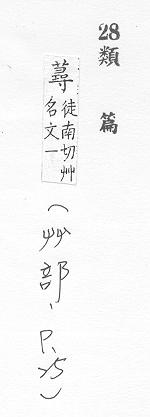 28類篇
蕁徒南切艸
名文一
(艸部、P.25)